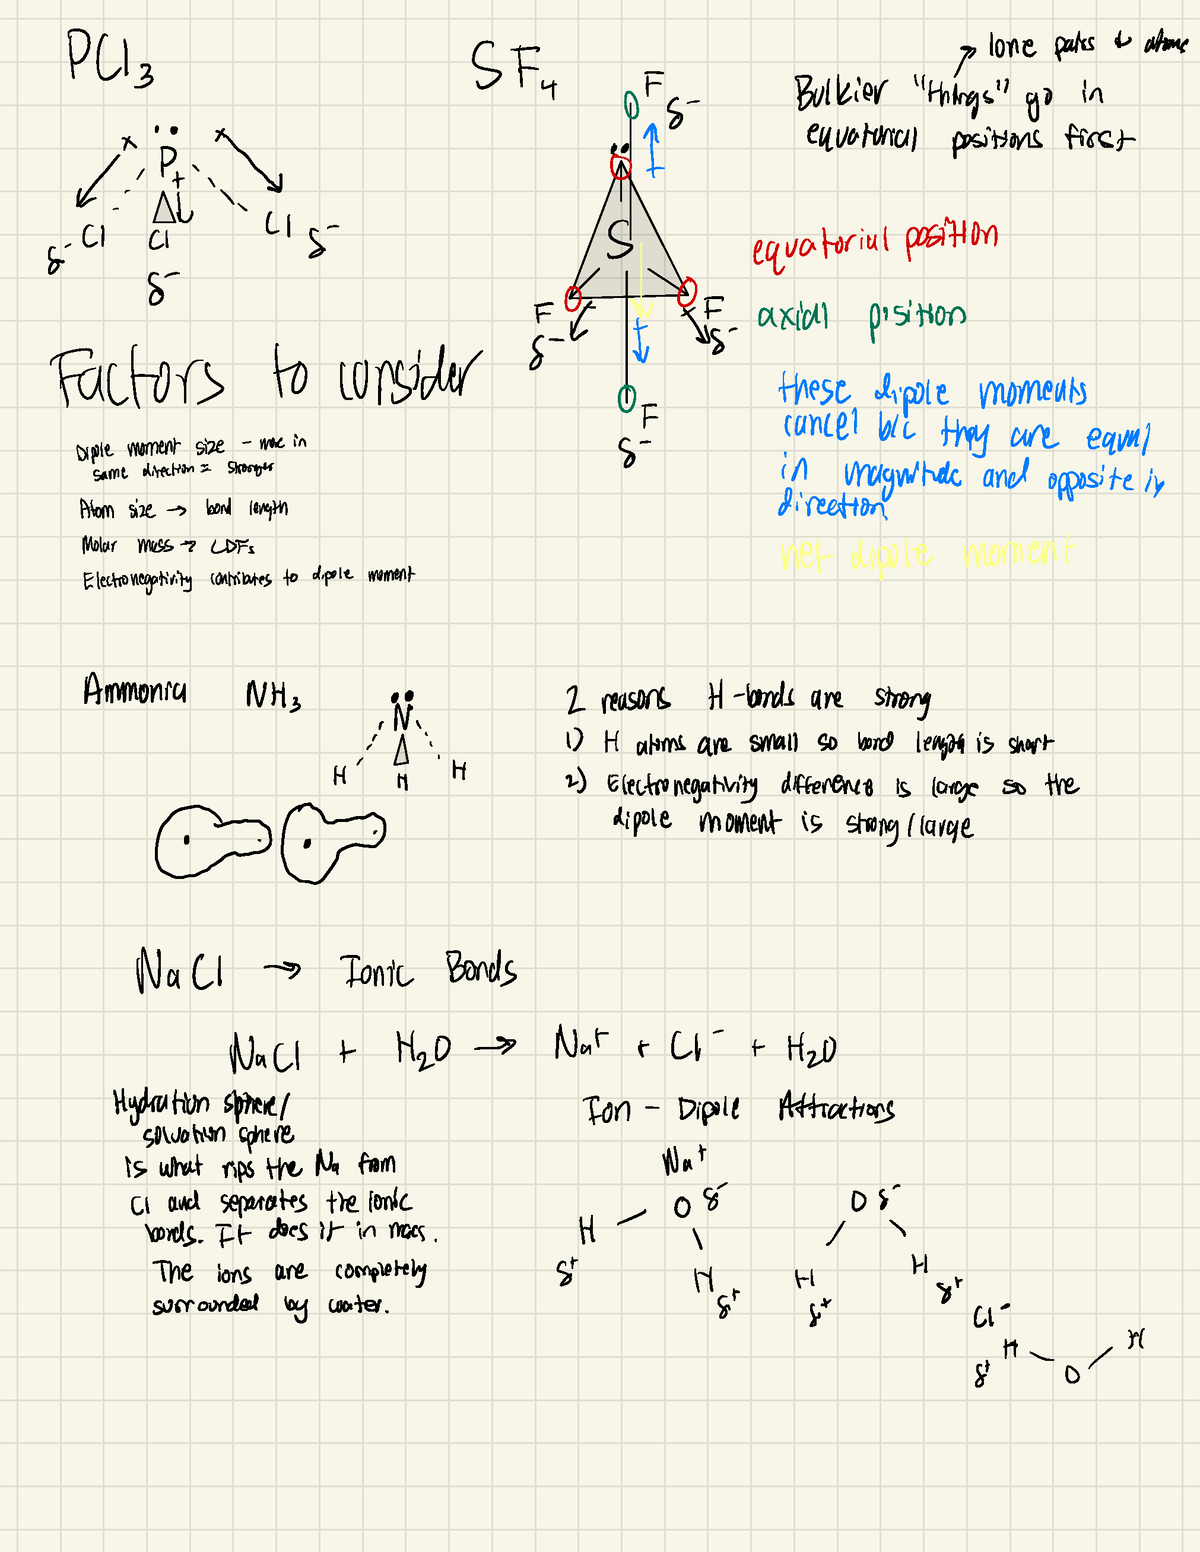 PCl3
P
Cl
Cl
Cl
δ-
δ-
δ-
SF4
F
δ-
S
F
δ-
F
δ-
F
δ-
lone pairs & atoms
Bulkier "things" go in
equatorial positions first
equatorial position
axial position
these dipole moments
cancel b/c they are equal
in magnitude and opposite in
direction
net dipole moment
Factors to consider
Dipole moment size - more in
same direction = stronger
Atom size → bond length
Molar mass → LDFs
Electronegativity contributes to dipole moment
Ammonia NH3
N
H
H
H
2 reasons H-bonds are strong
1) H atoms are small so bond length is short
2) Electronegativity difference is large so the
dipole moment is strong/large
NaCl → Ionic Bonds
NaCl + H2O → Na+ + Cl- + H2O
Hydration sphere/
solvation sphere
is what rips the Na from
Cl and separates the ionic
bonds. It does it in mass.
The ions are completely
surrounded by water.
Ion - Dipole Attractions
Na+
O δ-
H
δ+
H
δ+
O δ-
H
δ+
H
δ+
Cl-
H
δ+
O
H